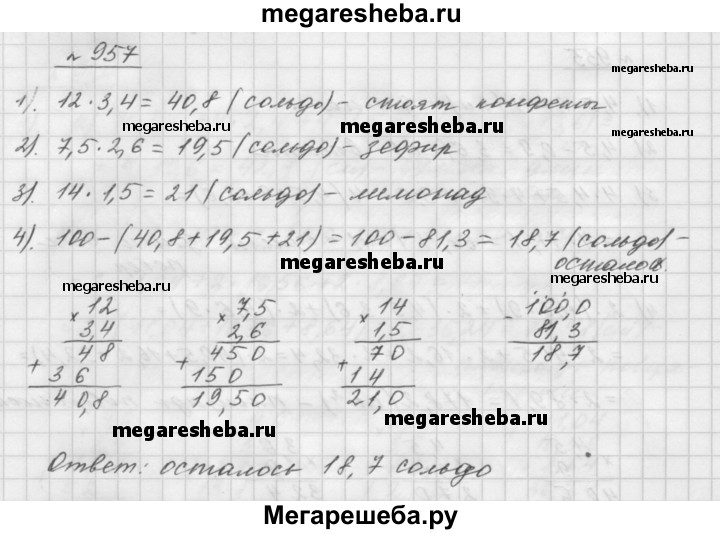 megaresheba.ru
№ 957
megaresheba.ru
1). 12 · 3,4 = 40,8 (сольдо) – стоят конфеты
megaresheba.ru megaresheba.ru
2). 7,5 · 2,6 = 19,5 (сольдо) – зефир
megaresheba.ru
3). 14 · 1,5 = 21 (сольдо) – лимонад
4). 100 – (40,8 + 19,5 + 21) = 100 – 81,3 = 18,7 (сольдо) –
осталось.
megaresheba.ru
megaresheba.ru megaresheba.ru
× 12 × 7,5 × 14 - 100,0
3,4 2,6 1,5 81,3
+ 48 + 450 + 70 18,7
36 150 14
40,8 19,50 21,0
megaresheba.ru
megaresheba.ru
Ответ: осталось 18,7 сольдо
Мегарешеба.ру